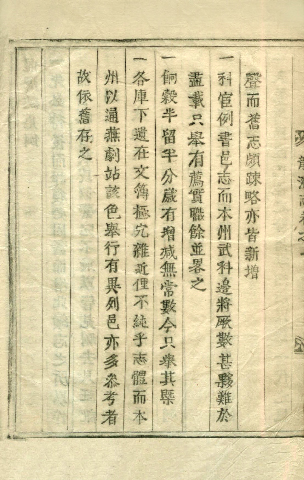 聲而舊志頗疎略亦皆新增
一科宦例書邑志而本州武科邊將厥數甚夥難於
盡載只舉有薦實職餘並畧之
一餉穀半留半分歲有增减無常數今只舉其槩
一各庫下遺在文簿極宂雜近俚不純乎志體而本
州以通燕劇站該色舉行有異列邑亦多參考者
故依舊存之